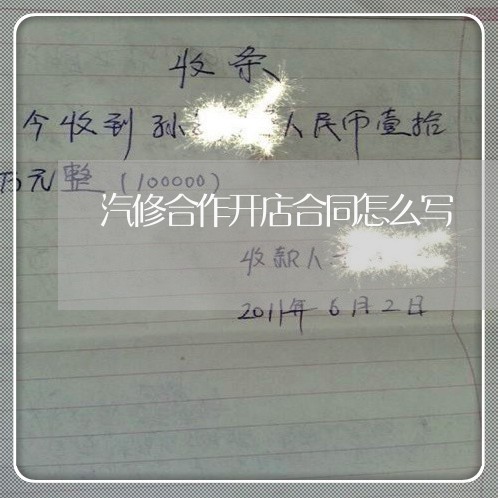 收条
今收到孙 人民币壹拾
万元整(100000)
汽修合作开店合同怎么写
收款人
2011年6月2日